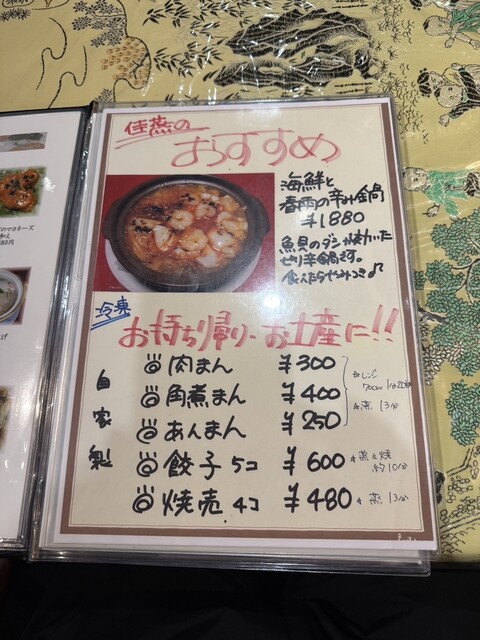 佳燕の
おすすめ
海鮮と
春雨の辛み鍋
¥1880
魚貝のダシが効いた
ピリ辛鍋です。
冷凍
お持ち帰り・お土産に!!
自家製
肉まん ¥300
角煮まん ¥400
あんまん ¥250
餃子 5コ ¥600
焼売 4コ ¥480
レンジ
700W
蒸 13分
蒸し焼
約10分
蒸 13分
のマヨネーズ
和え